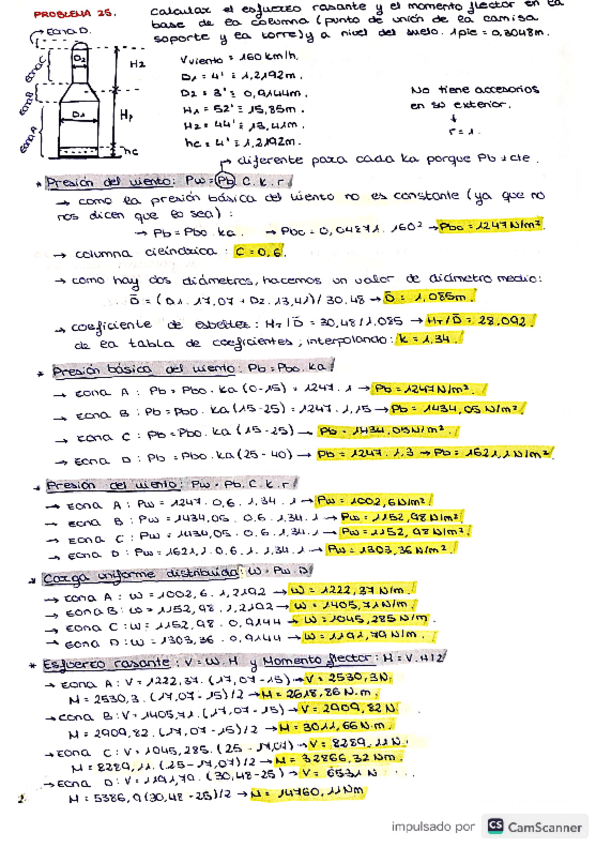 PROBLEMA 25.
Calcular el esfuerzo rasante y el momento flector en la
base de la columna (punto de unión de la camisa
soporte y la torre) y a nivel del suelo. 1 pie = 0,3048m.
zona D.
zona C
zona B
zona A
D2
H2
D1
H1
hc
Vviento = 160 km/h.
D1 = 4' = 1,2192m.
D2 = 3' = 0,9144m.
H1 = 52' = 15,85m.
H2 = 44' = 13,41m.
hc = 4' = 1,2192m.
No tiene accesorios
en su exterior.
r = 1.
diferente para cada ka porque Pb ≠ cte.
* Presión del viento: Pw = Pb. C. k. r
→ como la presión básica del viento no es constante (ya que no
nos dicen que lo sea):
→ Pb = Pbo. ka. → Pbo = 0,04871. 160² → Pbo = 1247 N/m².
→ columna cilíndrica: C = 0,6.
→ como hay dos diámetros, hacemos un valor de diámetro medio:
D̄ = (D1. 17,07 + D2. 13,41)/30.48 → D̄ = 1,085m.
→ coeficiente de esbeltez: HT/D̄ = 30,48/1.085 → HT/D̄ = 28,092.
de la tabla de coeficientes, interpolando: k = 1,34.
* Presión básica del viento: Pb = Pbo. ka
→ zona A: Pb = Pbo. ka (0-15) = 1247. 1 → Pb = 1247 N/m².
→ zona B: Pb = Pbo. ka (15-25) = 1247. 1,15 → Pb = 1434,05 N/m².
→ zona C: Pb = Pbo. ka (15-25) → Pb = 1434,05 N/m².
→ zona D: Pb = Pbo. ka (25-40) → Pb = 1247. 1,3 → Pb = 1621,1 N/m².
* Presión del viento: Pw = Pb. C. k. r
→ zona A: Pw = 1247. 0,6. 1,34. 1 → Pw = 1002,6 N/m².
→ zona B: Pw = 1434,05. 0.6. 1,34. 1 → Pw = 1152,98 N/m².
→ zona C: Pw = 1434,05. 0.6. 1,34. 1 → Pw = 1152,98 N/m².
→ zona D: Pw = 1621,1. 0.6. 1. 1,34. 1 → Pw = 1303,36 N/m².
* Carga uniforme distribuida: W = Pw. D
→ zona A: W = 1002,6. 1,2192 → W = 1222,37 N/m.
→ zona B: W = 1152,98. 1,2192 → W = 1405,71 N/m.
→ zona C: W = 1152,98. 0,9144 → W = 1045,285 N/m.
→ zona D: W = 1303,36. 0,9144 → W = 1191,79 N/m.
* Esfuerzo rasante: V = W. H y Momento flector: M = V. H/2
→ zona A: V = 1222,37. (17,07-15) → V = 2530,3 N.
M = 2530,3. (17,07-15)/2 → M = 2618,86 N.m.
→ zona B: V = 1405,71. (17,07-15) → V = 2909,82 N.
M = 2909,82. (17,07-15)/2 → M = 3011,66 N.m.
→ zona C: V = 1045,285. (25-17,07) → V = 8289,11 N.
M = 8289,11. (25-17,07)/2 → M = 32866,32 Nm.
→ zona D: V = 1191,79. (30,48-25) → V = 6531 N
M = 5386,9 (30,48-25)/2 → M = 14760,11 Nm
2
impulsado por CS CamScanner